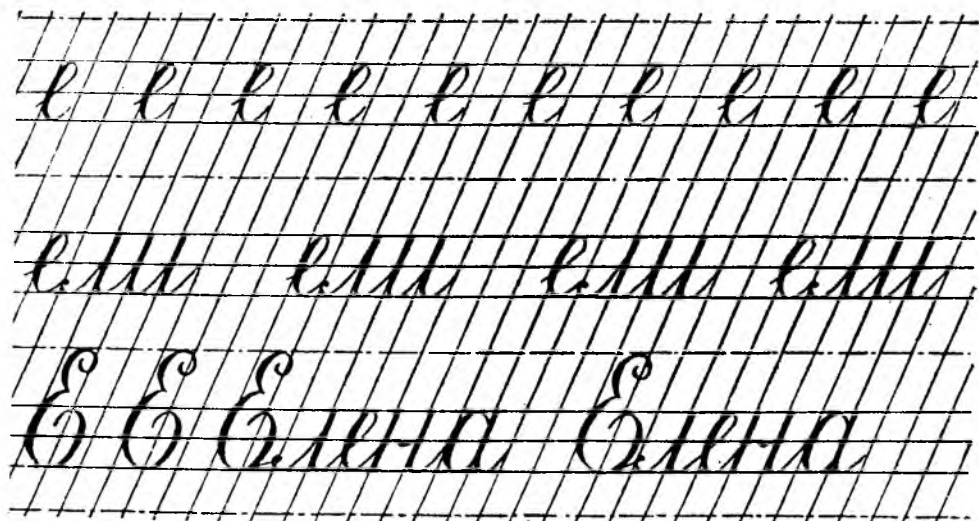 е е е е е е е е е е
ели ели ели ели
Е Е Елена Елена